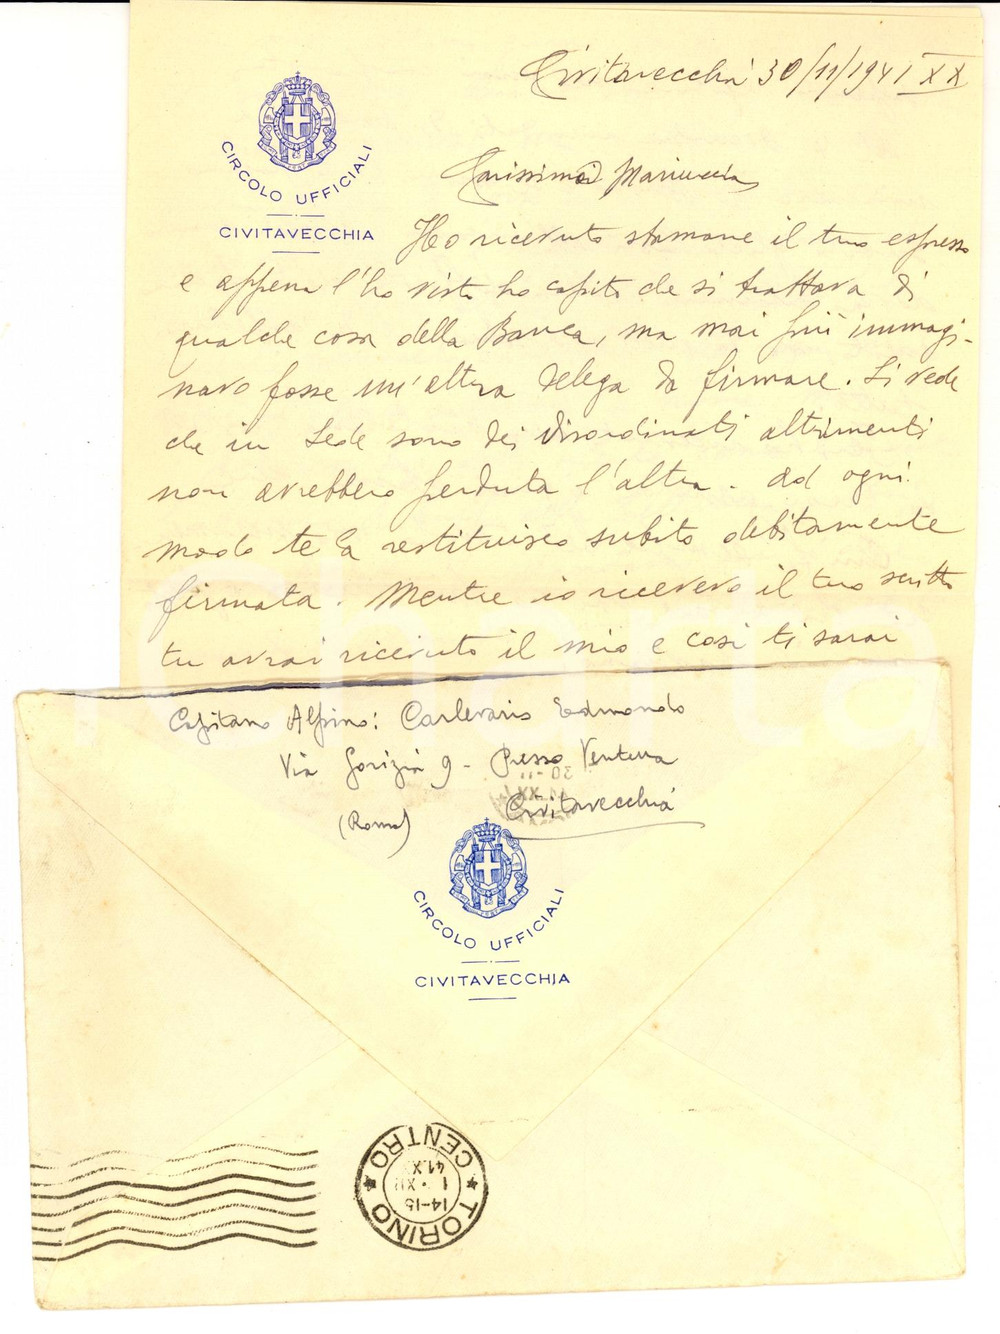 Civitavecchia 30/11/1941 XX
CIRCOLO UFFICIALI
CIVITAVECCHIA
Carissima Mariuccia
Ho ricevuto stamane il tuo espresso
e appena l'ho visto ho capito che si trattava di
qualche cosa della Banca, ma mai più immagi-
navo fosse un'altra delega da firmare. Si vede
che in Sede sono dei disordinati altrimenti
non avrebbero perduta l'altra. ad ogni
modo te la restituisco subito debitamente
firmata. Mentre io ricevevo il tuo scritto
tu avrai ricevuto il mio e così ti sarai
Capitano Alpino: Carlevaris Edmondo
Via Gorizia 9 - Presso Ventura
Civitavecchia
(Roma)
CIRCOLO UFFICIALI
CIVITAVECCHIA
TORINO CENTRO
14-15
41.X
charta